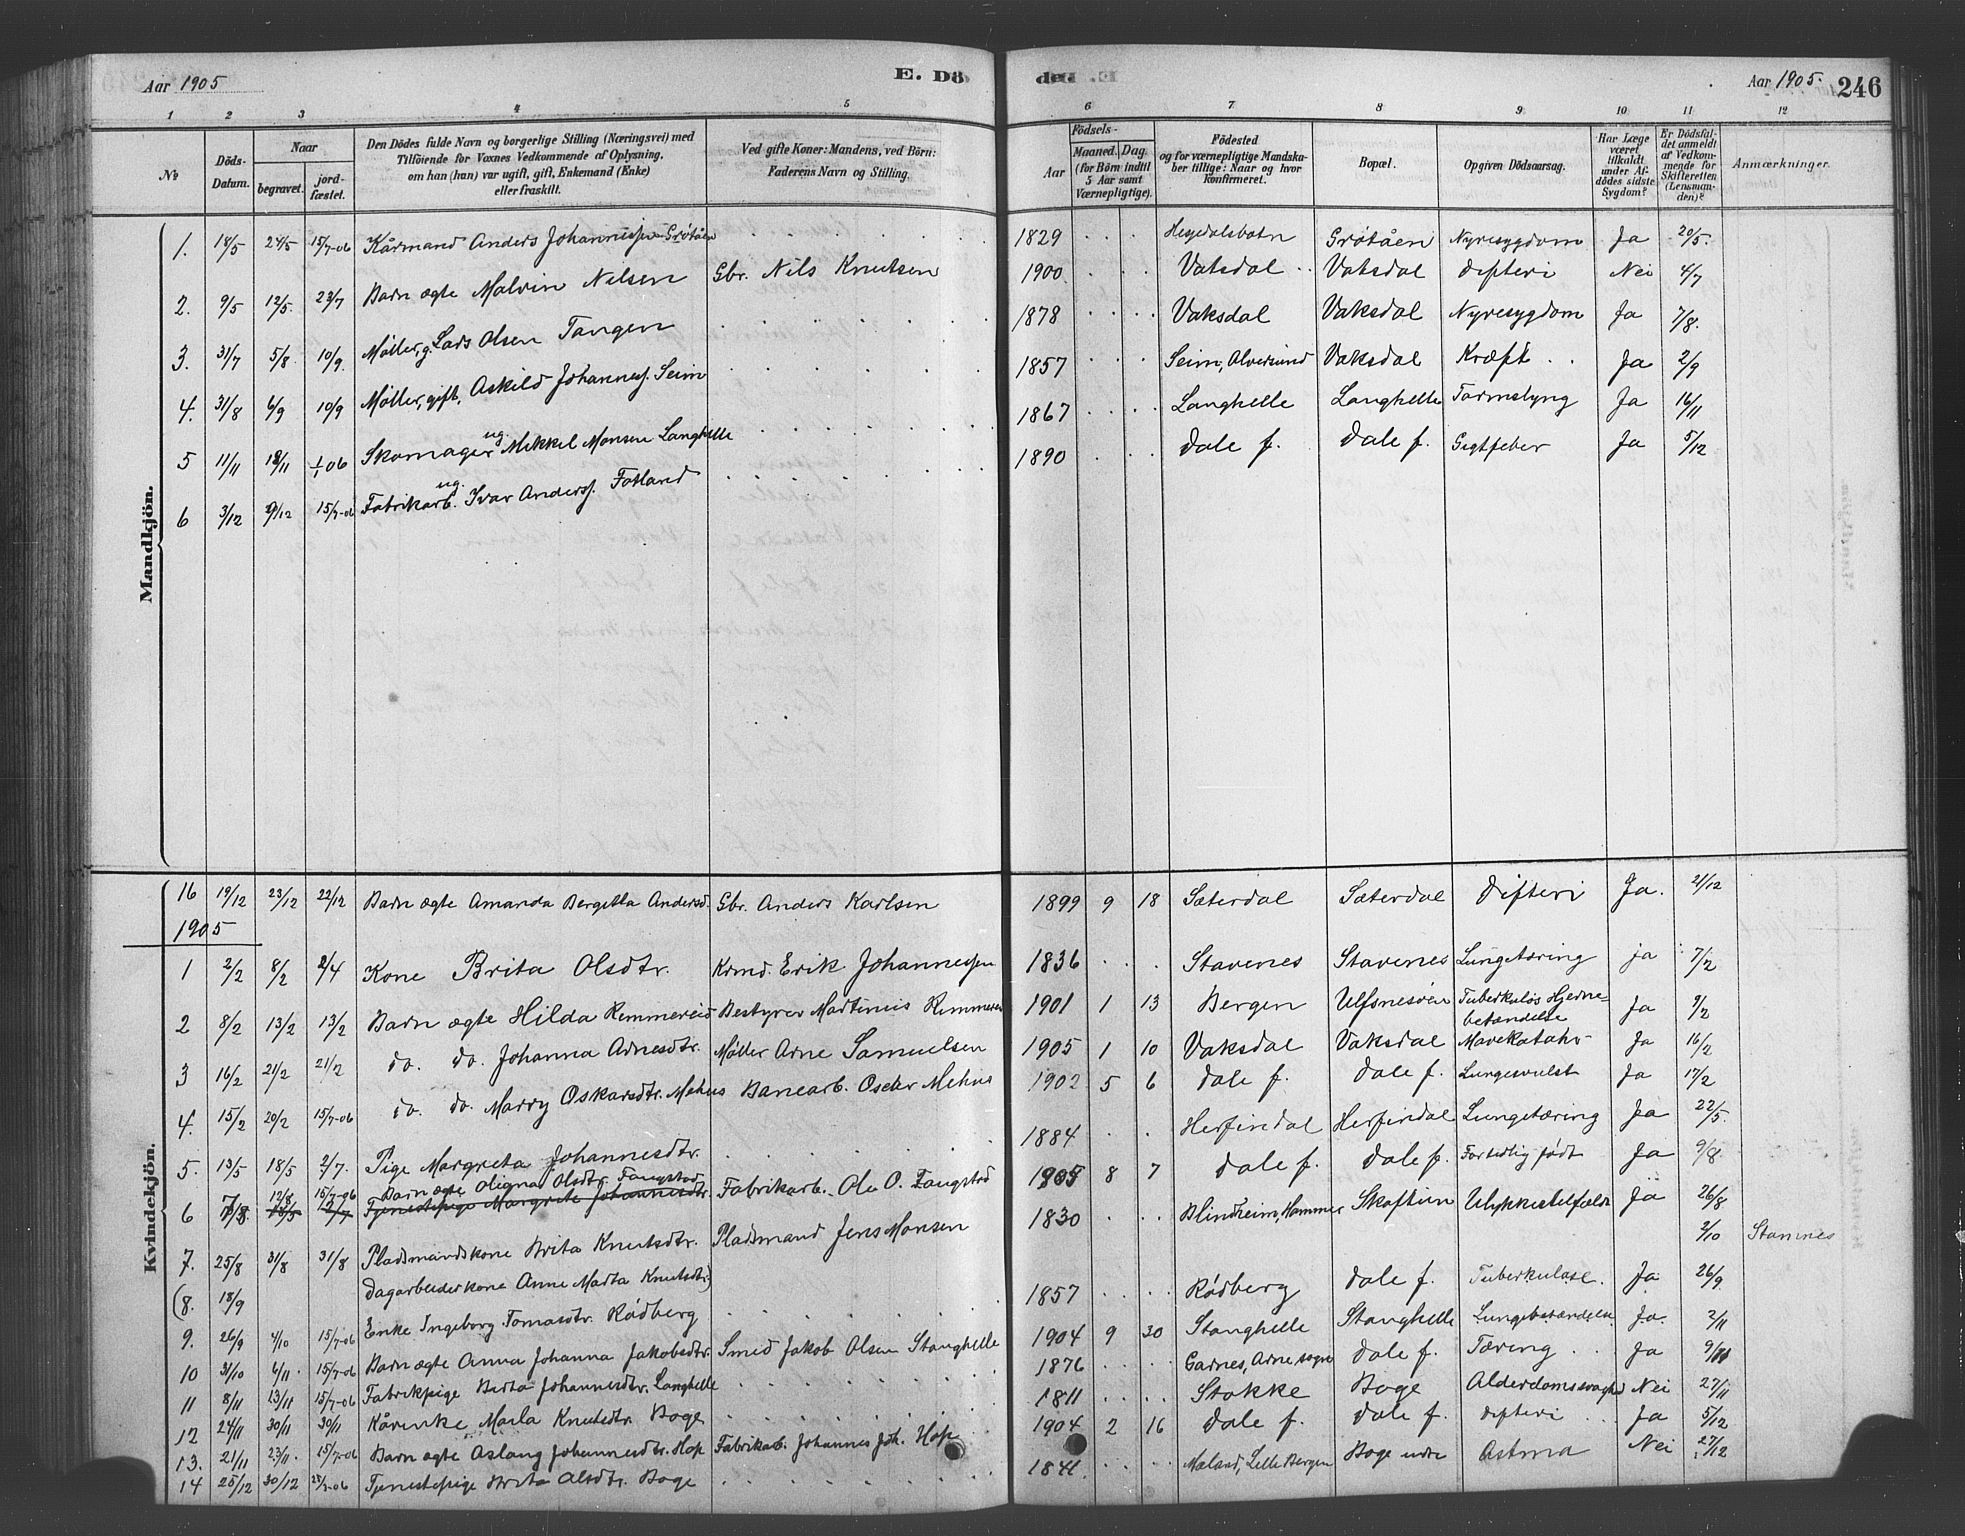 Aar 1905 E. Dö- den E. Aar 1905. 246
1 2 3 4 5 6 7 8 9 10 11 12
№ Döds-Datum. Naar begravet. jordfæstet. Den Dödes fulde Navn og borgerlige Stilling (Næringsvei) med Tilföiende for Voxnes Vedkommende af Oplysning, om han (hun) var ugift, gift, Enkemand (Enke) eller fraskilt. Ved gifte Koner: Mandens, ved Börn: Faderens Navn og Stilling. Födsels- Aar Maaned. Dag. (for Börn indtil 5 Aar samt Værnepligtige). Födested og for værnepligtige Mandskaber tillige: Naar og hvor konfirmeret. Bopæl. Opgiven Dödsaarsag. Har Læge været tilkaldt under Afdödes sidste Sygdom? Er Dödsfaldet anmeldt af Vedkommende for Skifteretten (Lensmanden)? Anmærkninger.
Mandkjön.
1. 18/5 24/5 15/7-06 Kårmand Anders Johannessen Grötåen 1829 Hesjedalsbotn Grötåen Nyresygdom Ja 20/5.
2. 9/5 12/5. 23/7 Barn ægte Malvin Nilsen Gbr. Nils Knutsen 1900 Vaksdal Vaksdal Difteri Nei 4/7
3. 31/7 5/8. 10/9. Møller, g. Lars Olsen Tangen 1878 Vaksdal Vaksdal Nyresygdom Ja 7/8.
4. 31/8 6/9 10/9 Møller, gift, Askild Johanness. Seim 1857 Seim, Alversund Vaksdal Kræft Ja 2/9
5 11/11 18/11 1/1 06 Skomager ug. Mikkel Monsen Langhelle 1867 Langhelle Langhelle Tarmslyng Ja 16/11
6 3/12 9/12 15/7-06 Fabrikarb. ug. Ivar Anderss. Fotland 1890 Dale f. Dale f. Gigtfeber Ja 5/12
Kvindekjön.
16 19/12 23/12 22/12 Barn ægte Amanda Bergitta Andersd. Gbr. Anders Karlsen 1899 9 18 Sæterdal Sæterdal Difteri Ja. 21/12
1905
1 2/2 8/2 2/4 Kone Brita Olsdtr. Krmd. Erik Johannessen 1836 Stavenes Stavenes Lungetæring ja 7/2
2 8/2 13/2 13/2 Barn ægte Hilda Remmereid Bestyrer Martinius Remmereid 1901 1 13 Bergen Ulfsnesøen Tuberkuløs Hjernebetændelse Ja 9/2
3 16/2 21/2 21/2 do. do. Johanna Arnesdtr. Møller Arne Samuelsen 1905 1 10 Vaksdal Vaksdal Mavekatahr Ja 16/2
4. 15/2 20/2 15/7-06 do. do. Marry Oskarsdtr. Mehus Banearb. Oscar Mehus 1902 5 6 Dale f. Dale f. Lungesvulst Ja 17/2
5. 13/5 18/5 2/7. Pige Margreta Johannesdtr. 1884 Herfindal Herfindal Lungetæring Ja 22/5
6 7/8 12/8 15/7-06 Barn ægte Oligna Olsdtr. Fangstad Fabrikarb. Ole O. Fangstad 1905 8 7 Dale f. Dale f. For tidlig født Ja 9/8
13/5 2/7 Tjenestepige Margreta Johannesdtr.
7. 25/8 31/8 31/8 Pladsmandskone Brita Knutsdtr. Pladsmand Jens Monsen 1830 Blindheim, Hammer Skoftun Ulykkestilfælde Ja 26/8
(8. 18/9 Dagarbeiderkone Anne Marta Knutsdtr.) 2/10 Stamnes
9. 26/9 4/10 15/7-06 Enke Ingeborg Tomasdtr. Rödberg 1857 Rödberg Dale f. Tuberkulose. Ja 26/9
10 31/10 6/11. 15/7-06 Barn ægte Anna Johanna Jakobsdtr. Smed Jakob Olsen Stanghelle 1904 9 30 Stanghelle Stanghelle Lungebetændelse Ja. 2/11
11 8/11 13/11 15/7-06 Fabrikpige Berta Johannesdtr. Langhelle 1876 Garnes, Arne sogn Dale f. Tæring Ja 9/11
12 24/11 30/11 30/11 Kårenke Marta Knutsdtr. Boge 1811 Stokke Boge Alderdomssvaghed Nei 27/11
13. 21/11 23/11. 15/7-06 Barn ægte Aslaug Johannesdtr. Hop Fabrikarb. Johannes Joh. Hop 1904 2 16 Dale f. Dale f. Difteri Ja 5/12
14 25/12 30/12 25/2-06 Tjenestepige Brita Olsdtr. Boge 1841. Mæland, Lille Bergen Boge indre Astma Nei 27/12